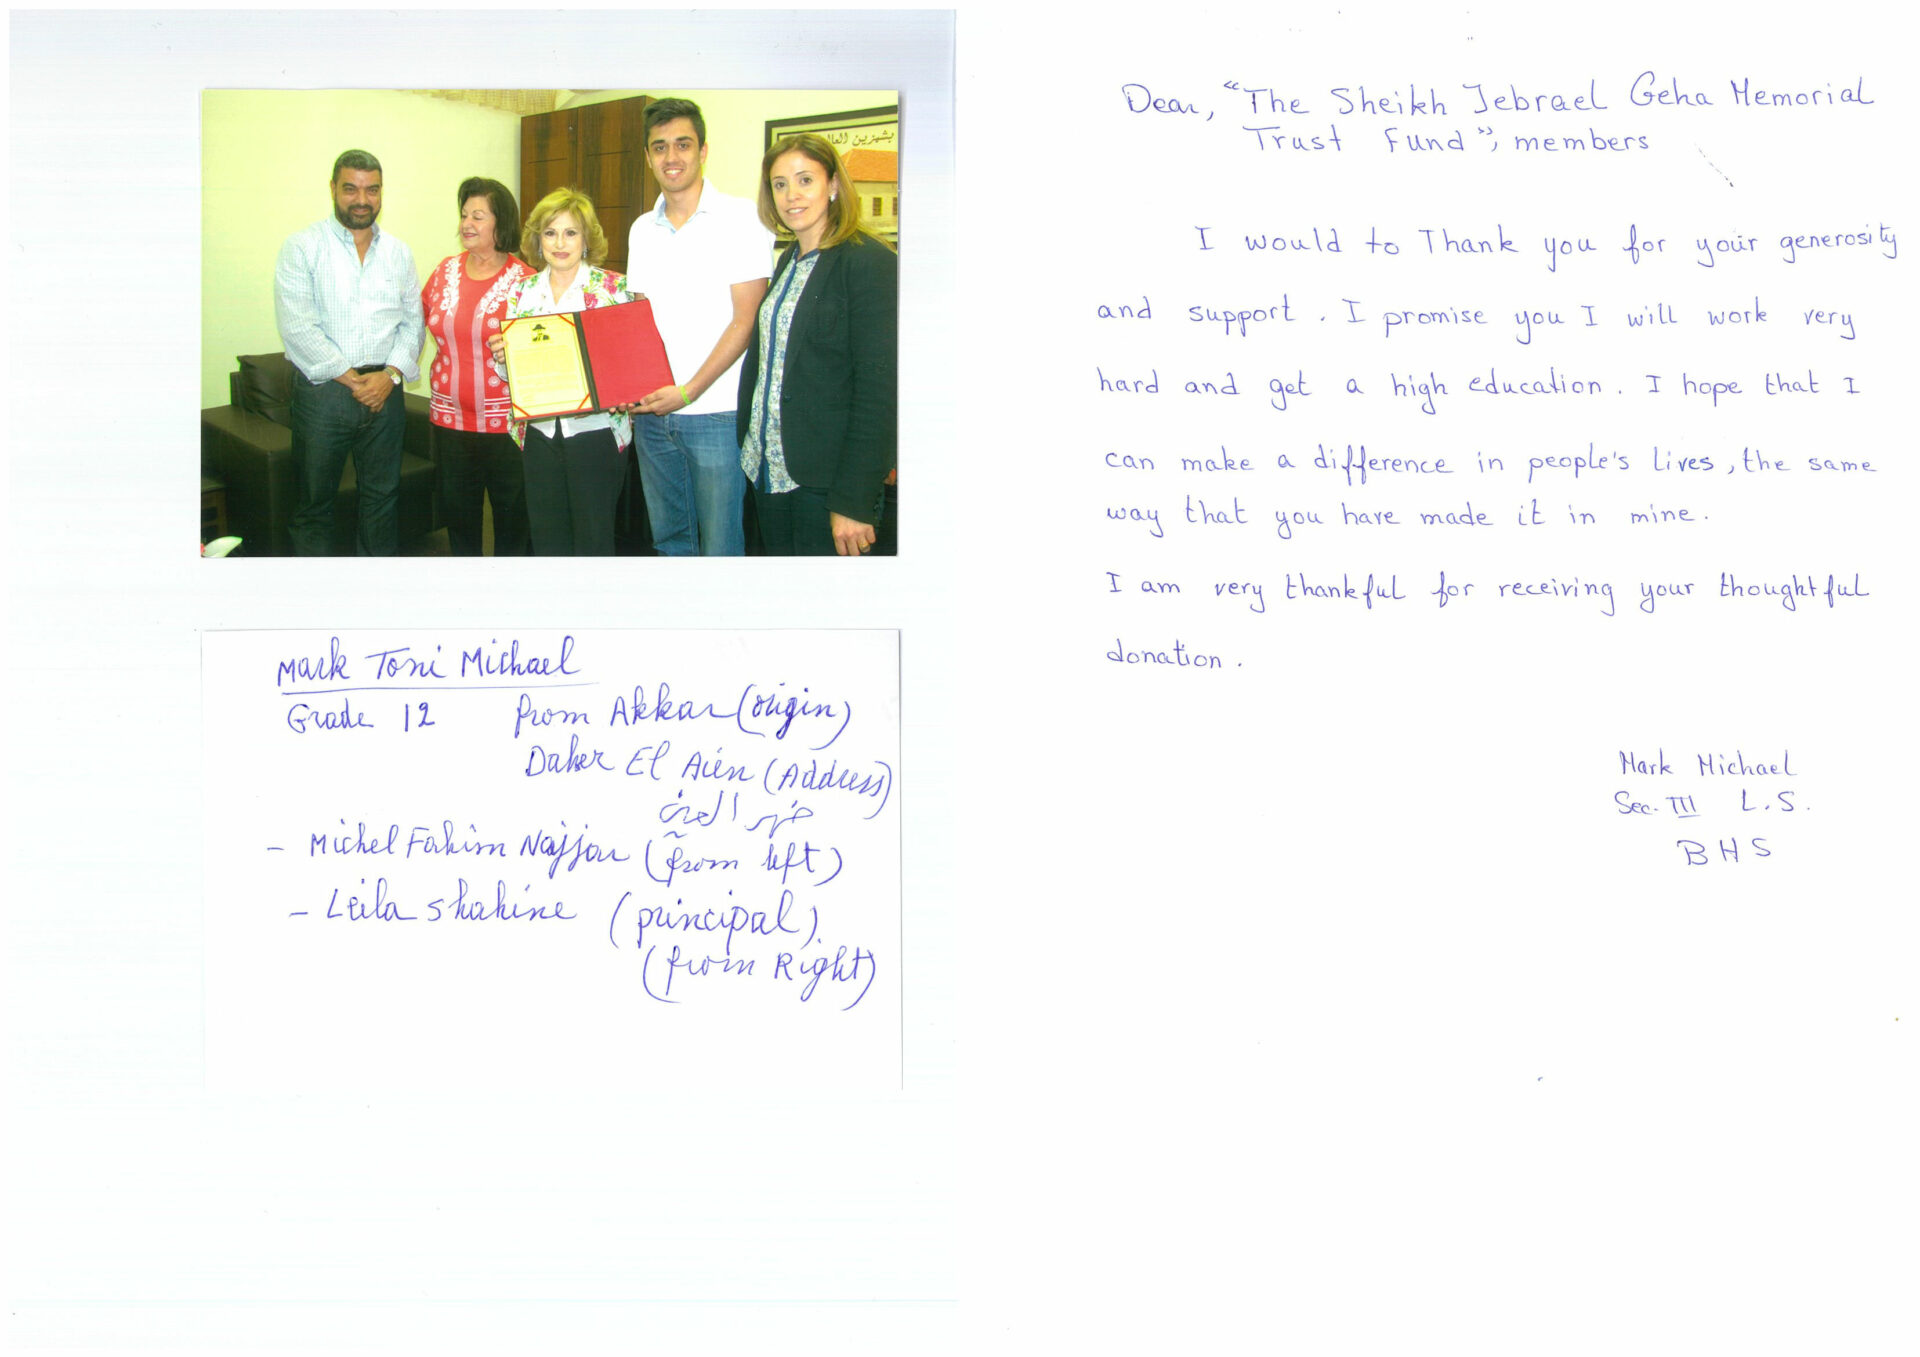 بشمزين العالي
Mark Toni Michael
Grade 12 from Akkar (origin)
Daher El Aien (Address)
ضهر العين
- Michel Fahim Najjar (from left)
- Leila Shahine (principal)
(from Right)
Dear, "The Sheikh Jebrael Geha Memorial
Trust Fund", members
I would to Thank you for your generosity
and support. I promise you I will work very
hard and get a high education. I hope that I
can make a difference in people's lives, the same
way that you have made it in mine.
I am very thankful for receiving your thoughtful
donation.
Mark Michael
Sec. III L.S.
BHS